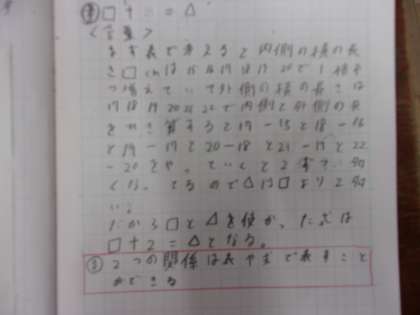 □+2=△
<言葉>
まず表で考えると内側の横の長
さ□cmは15 16 17 18 19 20で1ずつ
増えていて外側の横の長さは
17 18 19 20 21 22で内側と外側の長
さをひき算すると17-15と18-16
と19-17と20-18と21-19と22
-20をや、ていくと2
くなってるので△は□より2大
い。
だから□と△を使か、た式は
□+2=△となる。
③2つの関係は表や式で表すこと
ができる